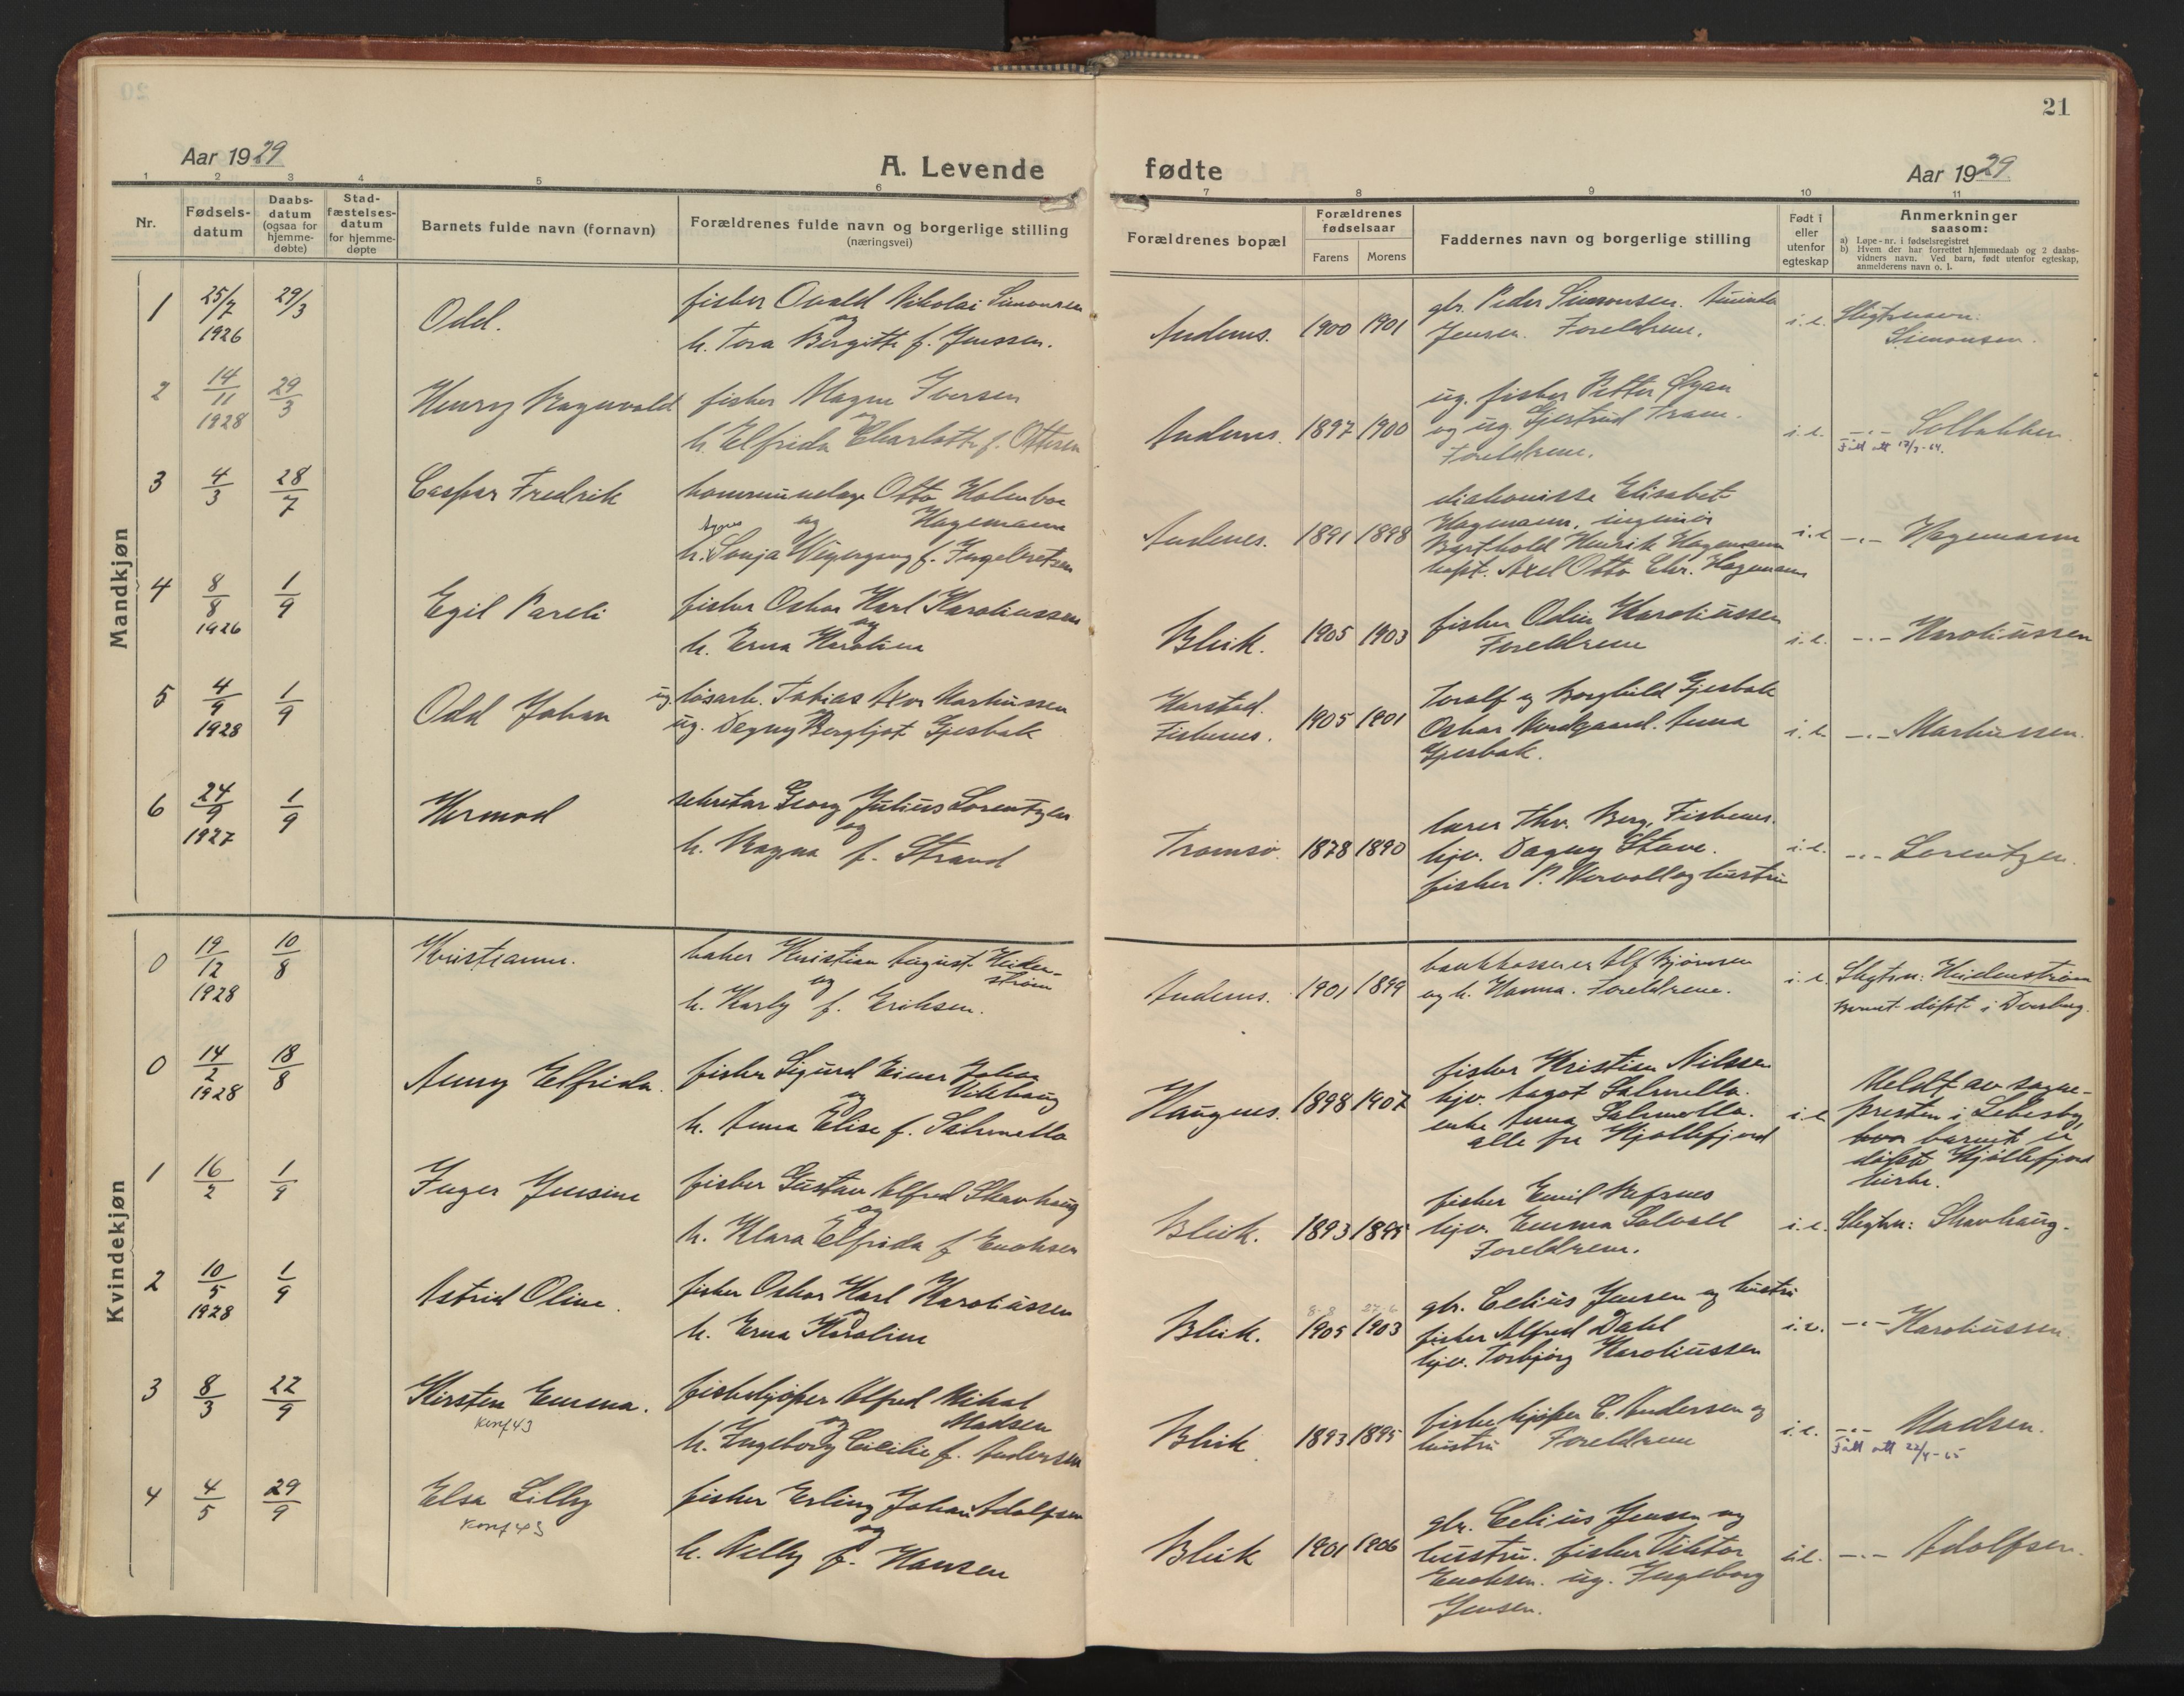 20
21
Aar 1929
A. Levende
fødte
Aar 1929
1 2 3 4 5 6 7 8 9 10 11
Nr.
Fødsels-datum
Daabs-datum (ogsaa for hjemme-døbte)
Stad-fæstelses-datum for hjemme-døpte
Barnets fulde navn (fornavn)
Forældrenes fulde navn og borgerlige stilling
(næringsvei)
Forældrenes bopæl
Forældrenes fødselsaar
Farens Morens
Faddernes navn og borgerlige stilling
Født i eller utenfor egteskap
Anmerkninger
saasom:
a) Løpe-nr. i fødselsregistret
b) Hvem der har forrettet hjemmedaab og 2 daabs-
vidners navn. Ved barn, født utenfor egteskap,
anmelderens navn o. l.
Mandkjøn
1 25/7 1926 29/3 Odd.
fisker Osvald Nikolai Simonsen
og
h. Tora Bergitte f. Jenssen.
Andenes. 1900 1901
gbr. Peder Simonsen.
Jensen. Foreldrene.
i.e. Slegtsnavn:
Simonsen.
2 14/11 1928 29/3 Henry Ragnvald
fisker Magne Iversen
og
h. Elfrida Charlotte f. Ottesen
Andenes. 1897 1900
ug. fisker Petter Øyan
og ug. Gjertrud Trane.
Foreldrene.
i.e. -"- Solbakken.
Fått att 17/3-64.
3 4/3 28/7 Caspar Fredrik
kommunelæge Otto Holmboe
og Hagemann
Agnes
h. Sonja Wigergang f. Ingebretsen
Andenes. 1891 1898
diakonisse Elisabet
Hagemann, ingeniør
Barthold Henrik Hagemann
kapt. Axel Otto Chr. Hagemann
i.e. -"- Hagemann
4 8/8 1926 1/9 Egil Pareli
fisker Oskar Karl Karoliussen
og
h. Erna Karoline
Bleik. 1905 1903
fisker Odin Karoliussen
Foreldrene
i.e. -"- Karoliussen
5 4/9 1928 1/9 Odd Johan
ug. løsarb. Tobias Markussen
ug. Dagny Bergljot Gjesbak
Harstad.
Fiskenes. 1905 1901
Toralf og Borghild Gjesbak
Oskar Nordgaard. Anna
Gjesbak.
-"- Markussen.
6 24/9 1927 1/9 Hermod
sekretær Georg Julius Lorentzen
og
h. Ragna f. Strand
Tromsø. 1878 1890
lærer Thv. Berg, Fiskenes.
hjv. Dagny Stave.
fisker P. Nervoll og hustru
i.e. -"- Lorentzen.
Kvindekjøn
0 19/12 1928 10/8 Kristianne.
baker Kristian August Heiden-
strøm
og
h. Karly f. Eriksen.
Andenes. 1901 1899
bankkasserer Alf Bjørnsen
og h. Hanna. Foreldrene.
i.e. Slegtsn: Heidenstrøm
Barnet døpt i Dverberg.
0 14/2 1928 18/8 Aunny Elfrida.
fisker Sigurd Einar Johan
Vikhaug
og
h. Anna Elise f. Salmella
Haugnes. 1898 1907
fisker Kristian Nilssen
hjv. Aagot Salmella.
enke Anna Salmella.
alle fra Kjøllefjord
i.e. Meldt av sogne-
presten i Lebesby,
hvor barnet er
døpt Kjøllefjord
kirke.
1 16/2 1/9 Inger Jensine
fisker Gustav Alfred Skavhaug
og
h. Klara Elfrida f Enoksen
Bleik. 1893 1895
fisker Emil Refsnes
hjv. Emma Solvoll
Foreldrene.
i.e. Slegtsn: Skavhaug.
2 10/5 1928 1/9 Astrid Oline.
fisker Oskar Karl Karoliussen
og
h. Erna Karoline
8-8 27-6
Bleik. 1905 1903
gbr. Celius Jensen og hustru
fisker Alfred Dahl
hjv. Torbjørg Karoliussen
i.e. -"- Karoliussen
3 8/3 22/9 Kirsten Emma.
Konf 43
fiskekjøper Alfred Mikal
Madsen
og
h. Ingeborg Cecilie f. Andersen
Bleik 1893 1895
fiskekjøper C. Andersen og
hustru Foreldrene
i.e. -"- Madsen.
Fått att 22/4-65
4 4/5 29/9 Elsa Lilly
Konf 43
fisker Erling Johan Adolfsen
og
h. Nelly f. Hansen
Bleik 1901 1906
gbr. Celius Jensen og
hustru. fisker Viktor
Enoksen. ug. Ingeborg
Jensen.
i.e. -"- Adolfsen.